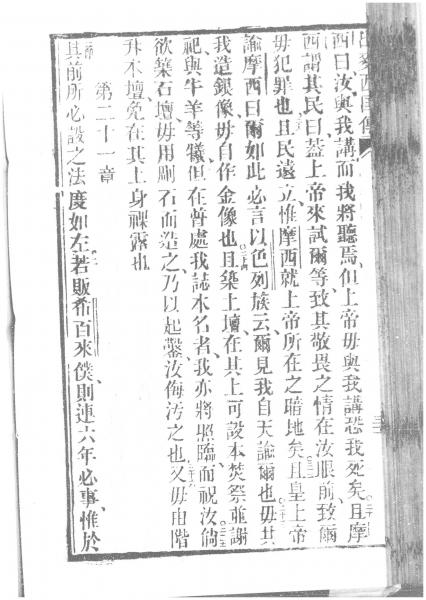 西曰、汝與我講而我將聽焉、但上帝毋與我講恐我死矣、且摩
西謂其民曰、蓋上帝來試爾等、致其敬畏之情在汝眼前、致爾
毋犯罪也、且民遠立、惟摩西就上帝所在之暗地矣、且皇上帝
諭摩西曰、爾如此必言以色列族云、爾見我自天諭爾也、毋共
我造銀像毋自作金像也、且築土壇、在其上可設本焚祭並謝
祀、與牛羊等犧、但在普處我誌本名者、我亦將照臨而祝汝、倘
欲築石壇、毋用剛石而造之、乃以起鑿、汝侮污之也、又毋由階
升本壇、免在其上身裸露也
第二十一章
其前所必設之法度如左、若販希百來僕、則連六年必事、惟於